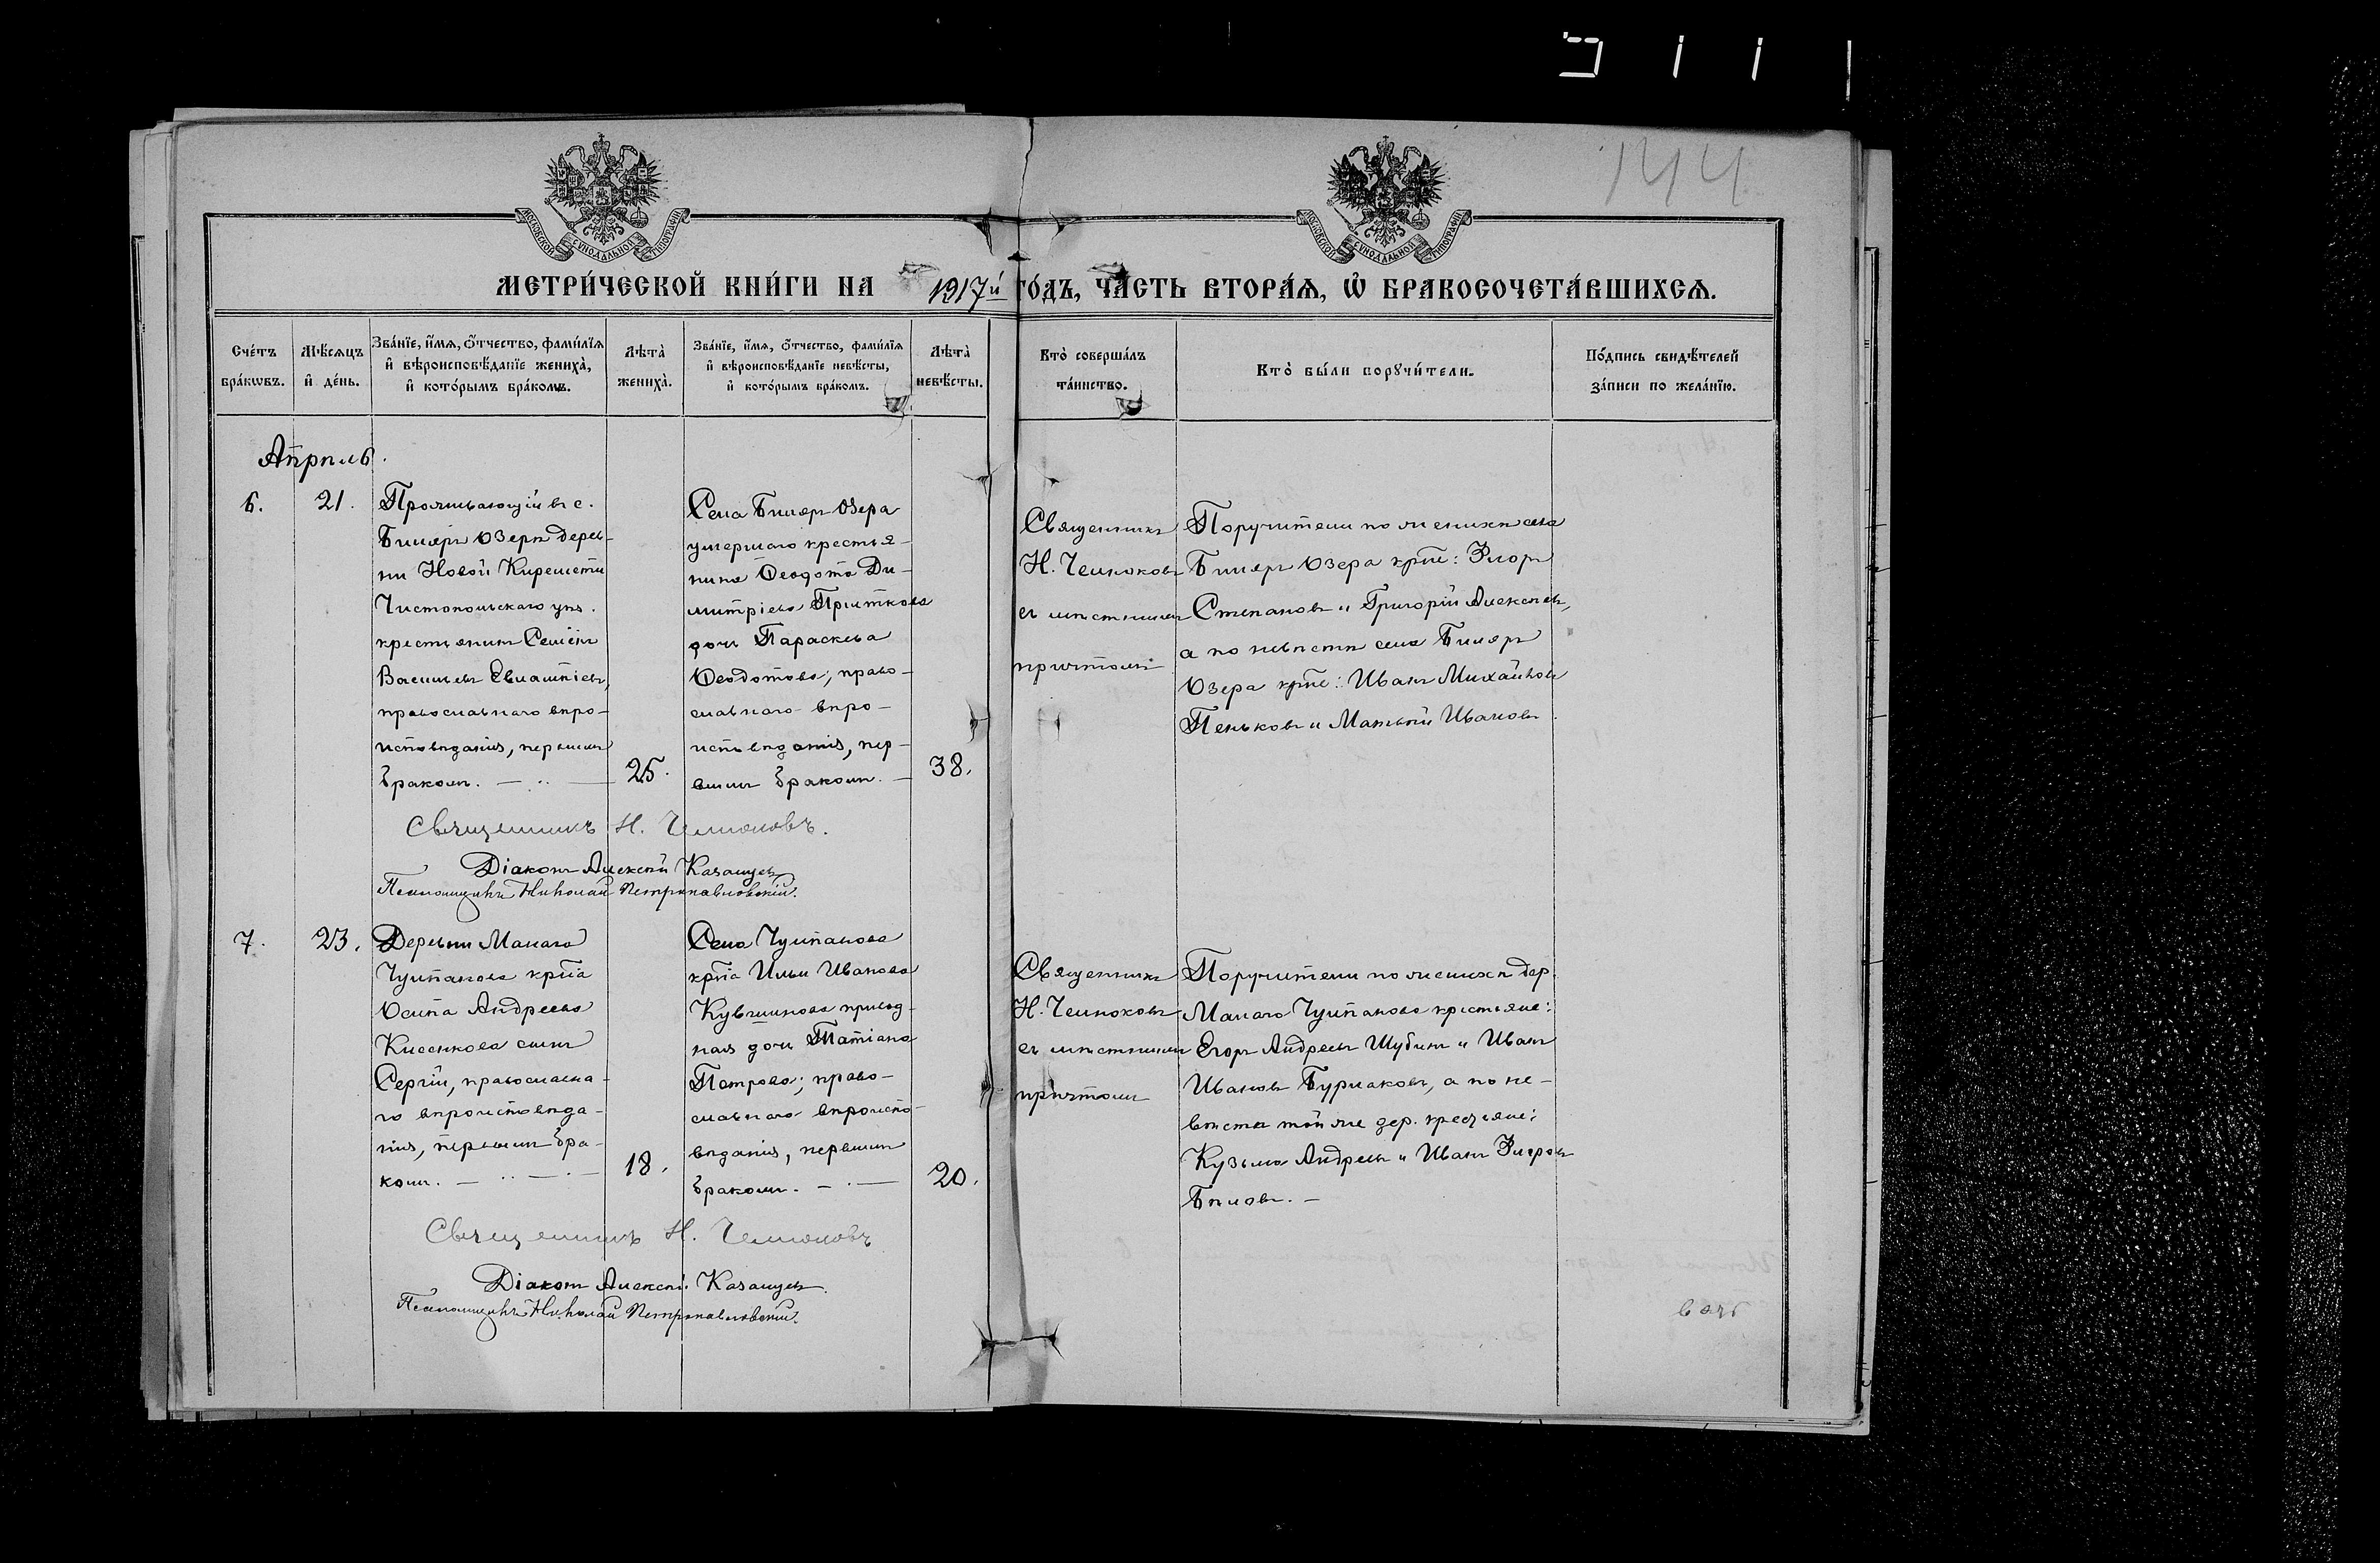 144
МОСКОВСКОЙ СѴНОДАЛЬНОЙ ТИПОГРАФІИ
МОСКОВСКОЙ СѴНОДАЛЬНОЙ ТИПОГРАФІИ
МЕТРИ́ЧЕСКОЙ КНИ́ГИ НА 1917й ГО́ДЪ, ЧА́СТЬ ВТОРА́Ѧ, Ѡ҆ БРАКОСОЧЕТА́ВШИХСѦ.
Сче́тъ
бра́кѡвъ.
Мѣ́сѧцъ
и҆ де́нь.
Зва́нїе, и҆́мѧ, ѻ҆́тчество, фами́лїѧ
и҆ вѣроисповѣ́данїе жениха̀,
и҆ кото́рымъ бра́комъ.
Лѣта̀
жениха̀.
Зва́нїе, и҆́мѧ, ѻ҆́тчество, фами́лїѧ
и҆ вѣроисповѣ́данїе невѣ́сты,
и҆ кото́рымъ бра́комъ.
Лѣта̀
невѣ́сты.
Кто̀ соверша́лъ
та́инство.
Кто̀ бы́ли порꙋчи́тели.
По́дпись свидѣ́телей
за́писи по жела́нїю.
Апрѣль.
6.
21.
Проживающій въ с.
Биляръ Озерѣ дерев-
ни Новой Киремети
Чистопольскаго уѣз.
крестьянинъ Семенъ
Васильевъ
православнаго вѣро-
исповѣданія, первымъ
бракомъ.
25.
Села Биляръ Озера
умершаго крестья-
нина Ѳеодота Ди-
митріева Приткова
дочь Параскева
Ѳеодотова; право-
славнаго вѣро-
исповѣданія, пер-
вымъ бракомъ.
38.
Священникъ
Н. Челноковъ
съ мѣстнымъ
причтомъ
Поручители по женихѣ села
Биляръ Озера крѣе: Флоръ
Степановъ и Григорій Алексѣевъ,
а по невѣстѣ села Биляръ
Озера крѣе: Иванъ Михайловъ
Пеньковъ и Матвѣй Ивановъ.
Священникъ Н. Челноковъ.
Діаконъ Алексѣй Казанцевъ
Псаломщикъ Николай Петропавловскій.
7.
23.
Деревни Малаго
Чулпанова крѣа
Осипа Андреева
Киселкова сынъ
Сергій, православна-
го вѣроисповѣда-
нія, первымъ бра-
комъ.
18.
Села Чулпанова
крѣа Ильи Иванова
Кувшинова привод-
ная дочь Татіана
Петрова; право-
славнаго вѣроиспо-
вѣданія, первымъ
бракомъ.
20.
Священникъ
Н. Челноковъ
съ мѣстнымъ
причтомъ
Поручители по женихѣ дер.
Малаго Чулпанова крестьяне:
Егоръ Андреевъ Шубинъ и Иванъ
Ивановъ Бурлаковъ, а по не-
вѣстѣ той же дер. крестьяне:
Кузьма Андреевъ и Иванъ Флоровъ
Бѣловъ.
Священникъ Н. Челноковъ
Діаконъ Алексѣй Казанцевъ.
Псаломщикъ Николай Петропавловскій.